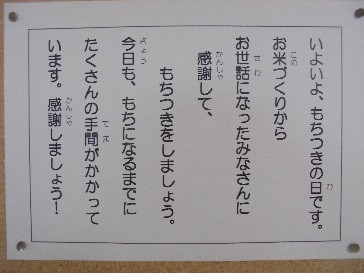 いよいよ、もちつきの日です。
お米づくりから
お世話になったみなさんに
感謝して、
もちつきをしましょう。
今日も、もちになるまでに
たくさんの手間がかかって
います。感謝しましょう！